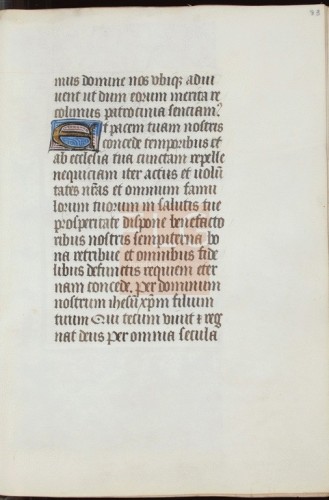 mus domine nos vbiq; adiu
uent ut dum eorum merita re
colimus patrocinia senciam?
Et pacem tuam nostris
concede temporibus et
ab ecclesia tua cunctam repelle
nequiciam iter actus et uolū
tates nr̄as et omnium famu
lorum tuorum in salutis tue
prosperitate dispone benefacto
ribus nostris sempiterna bo
na retribue et omnibus fide
libus defunctis requiem eter
nam concede. Per dominum
nostrum ihesū xp̄m filium
tuum Qui tecum viuit ⁊ reg
nat deus per omnia secula